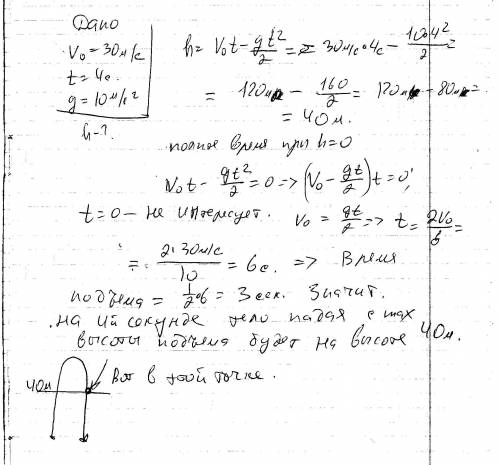 Дано
V₀ = 30 м/с
t = 4с.
g = 10 м/с²
h - ?
h = V₀t - gt²/2 = 30 м/с · 4с - 10·4²/2 =
= 120м - 160/2 = 120м - 80м =
= 40 м.
полное время при h=0
V₀t - gt²/2 = 0 => (V₀ - gt/2) t = 0;
t = 0 - не интересует. V₀ = gt/2 => t = 2V₀/g =
= 2·30м/с/10 = 6с. => Время
подъема = 1/2·6 = 3 сек. Значит.
на 4й секунде тело падая с max
высоты подъема будет на высоте 40м.
40м
Вот в этой точке.